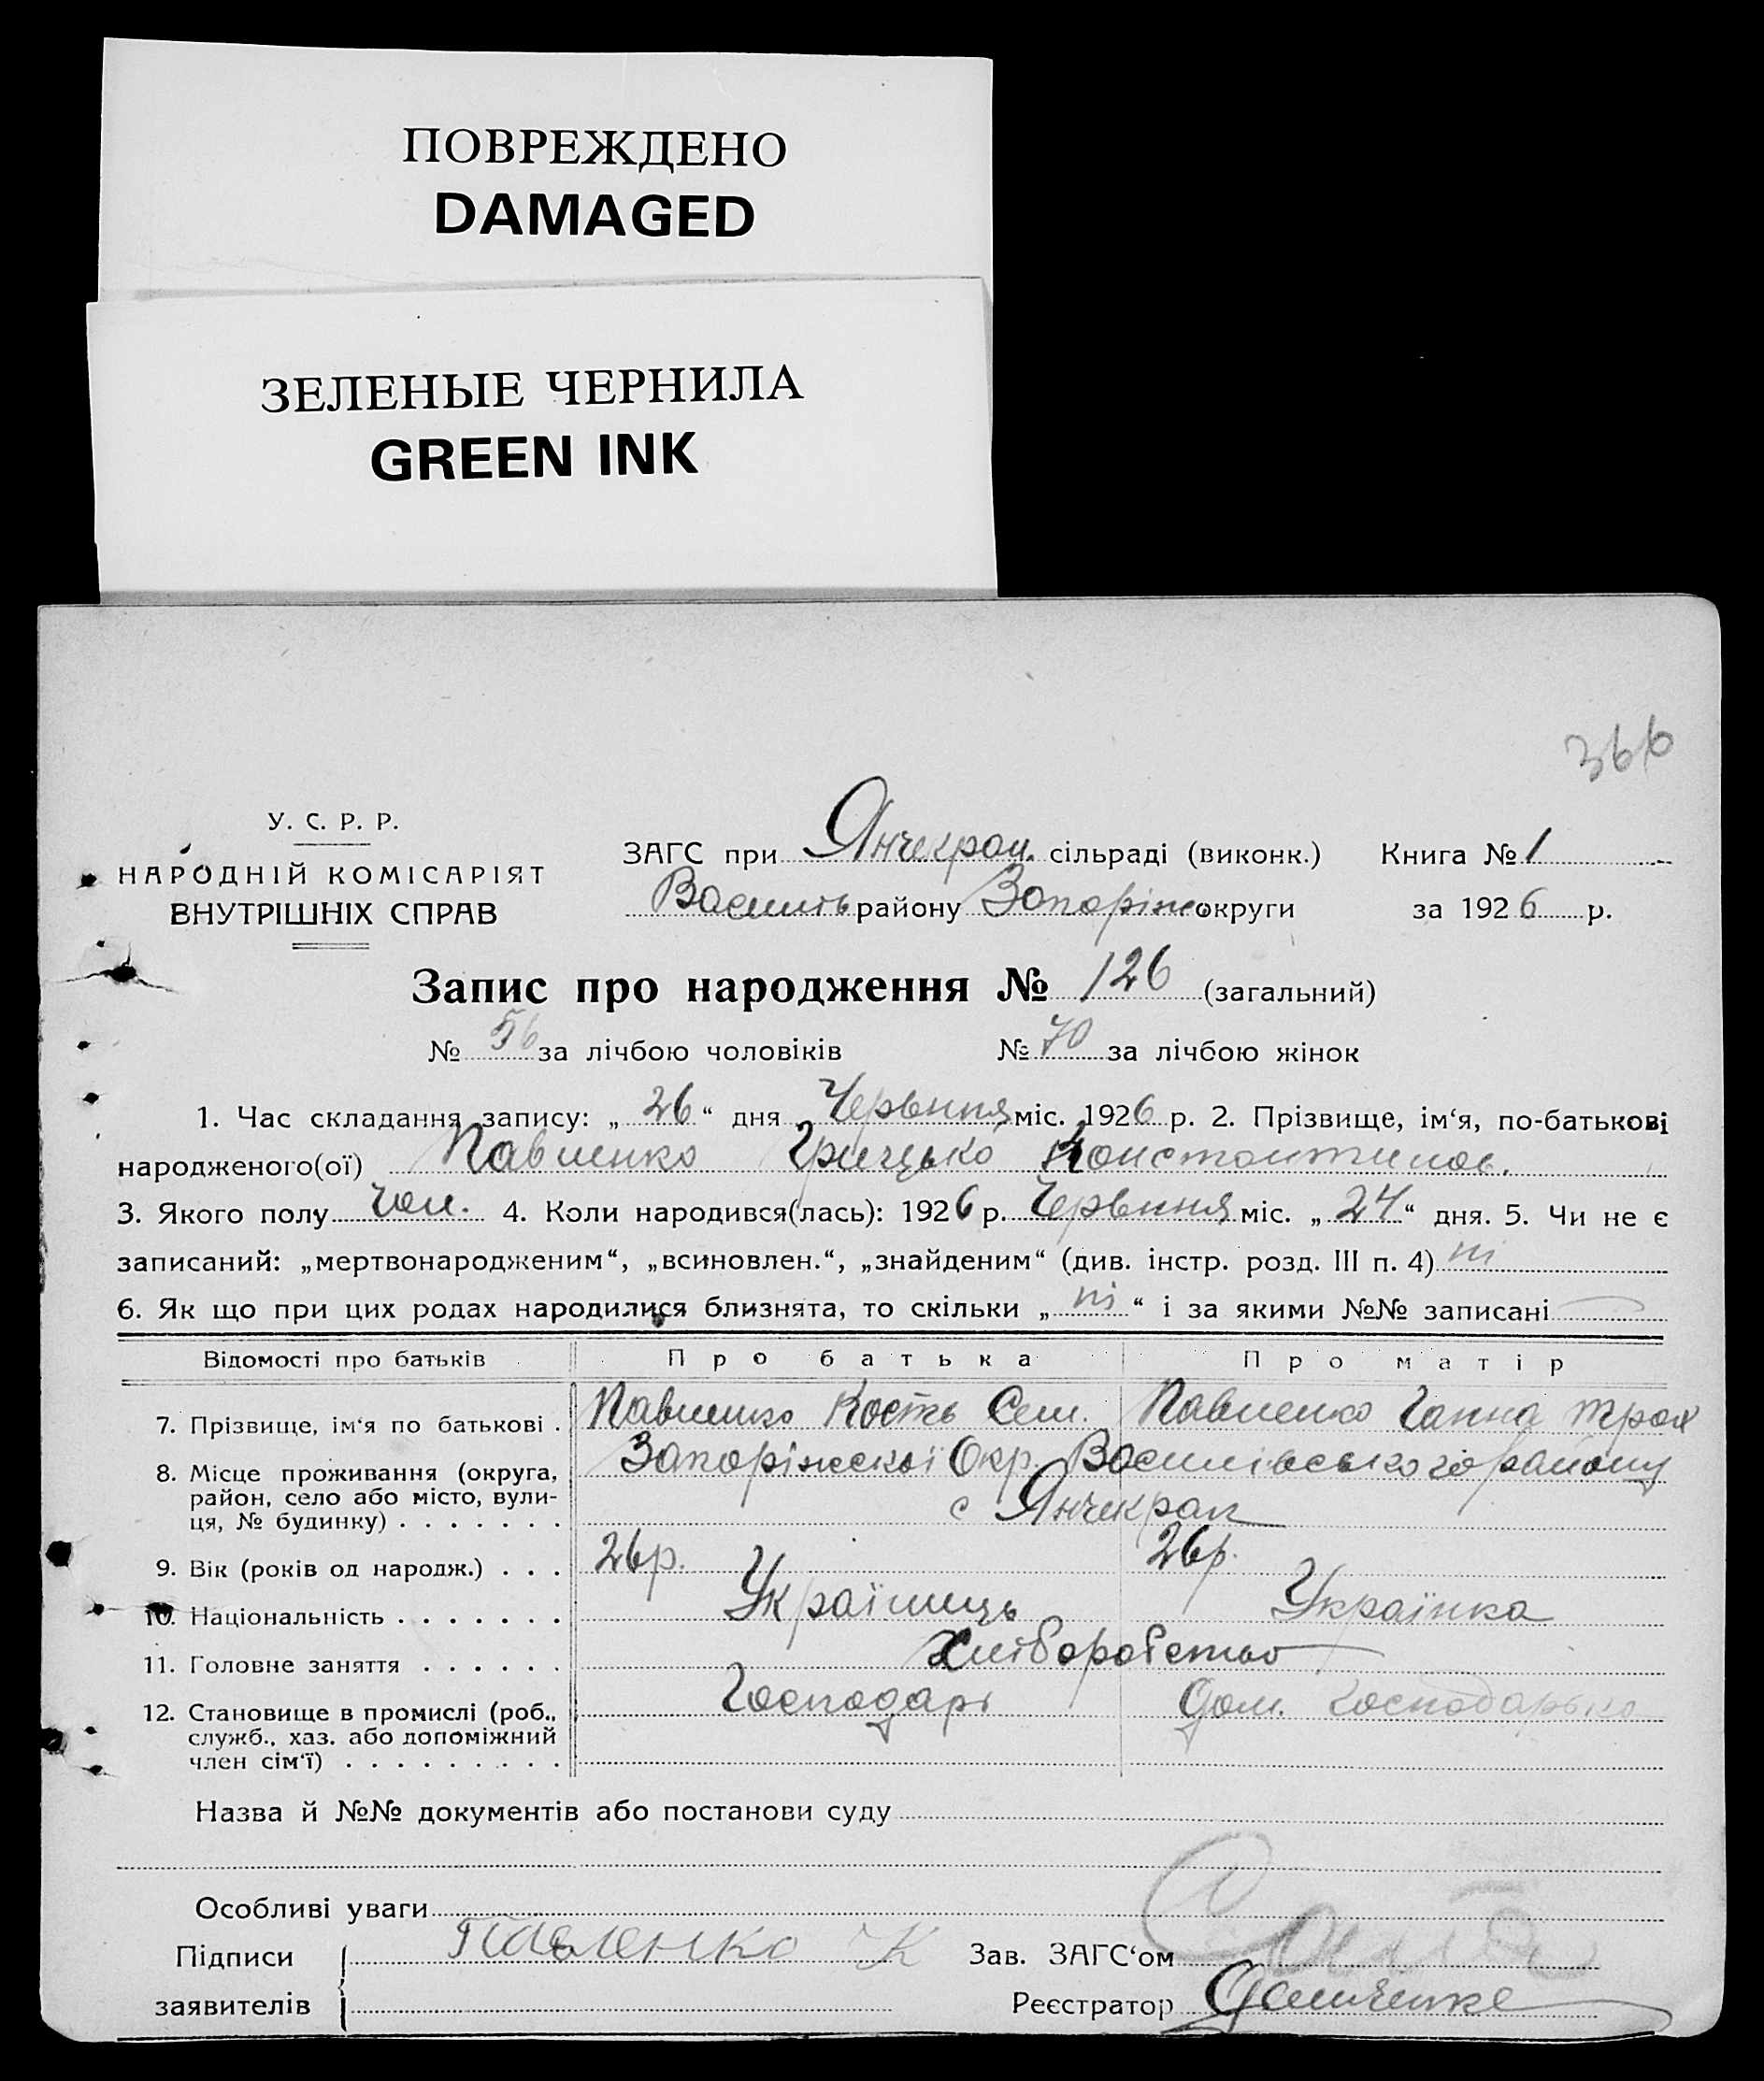 ПОВРЕЖДЕНО
DAMAGED
ЗЕЛЕНЫЕ ЧЕРНИЛА
GREEN INK
366
У. С. Р. Р.
НАРОДНІЙ КОМІСАРІЯТ
ВНУТРІШНІХ СПРАВ
ЗАГС при Янчекрак. сільраді (виконк.) Книга № 1
Василів району Запоріж округи за 1926 р.
Запис про народження № 126 (загальний)
№ 56 за лічбою чоловіків № 70 за лічбою жінок
1. Час складання запису: „26“ дня Червння міс. 1926 р. 2. Прізвище, ім‘я, по-батькові
народженого(ої) Павленко Грицько Константинов.
3. Якого полу Чол. 4. Коли народився(лась): 1926 р. Червння міс. „24“ дня. 5. Чи не є
записаний: „мертвонародженим“, „всиновлен.“, „знайденим“ (див. інстр. розд. III п. 4) ні
6. Як що при цих родах народилися близнята, то скільки „ні“ і за якими №№ записані
Відомості про батьків Про батька Про матір
7. Прізвище, ім‘я по батькові . Павленко Кость Сем. Павленко Ганна Троф
8. Місце проживання (округа, район, село або місто, вулиця, № будинку) . . . . . . . Запоріжскої Окр. Василівського району
с Янчекрак
9. Вік (років од народж.) . . . 26 р. 26 р.
10. Національність . . . . . . . Українець Українка
11. Головне заняття . . . . . . Хліборобство
12. Становище в промислі (роб., служб., хаз. або допоміжний член сім‘ї) . . . . . . . . . Господарь Дом. господарька
Назва й №№ документів або постанови суду
Особливі уваги
Підписи заявителів Павленко К Зав. ЗАГС‘ом
Реєстратор